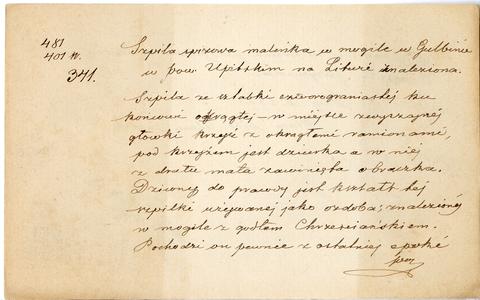 481
401 W.
341.
Szpila spiżowa maleńka w mogile w Gulbinie
w pow. Upitskim na Litwie znaleziona.
Szpila ze sztabki czworograniastej ku
końcowi okrągłej – w miejsce zwyczajnej
główki krzyż z okrągłemi ramionami,
pod krzyżem jest dziurka a w niej
z drutu mała zawinięta obrączka.
Dziwny do prawdy jest kształt tej
szpilki używanej jako ozdoba; znalezionej
w mogile z godłem Chrześciańskiem.
Pochodzi on pewnie z ostatniej epoki